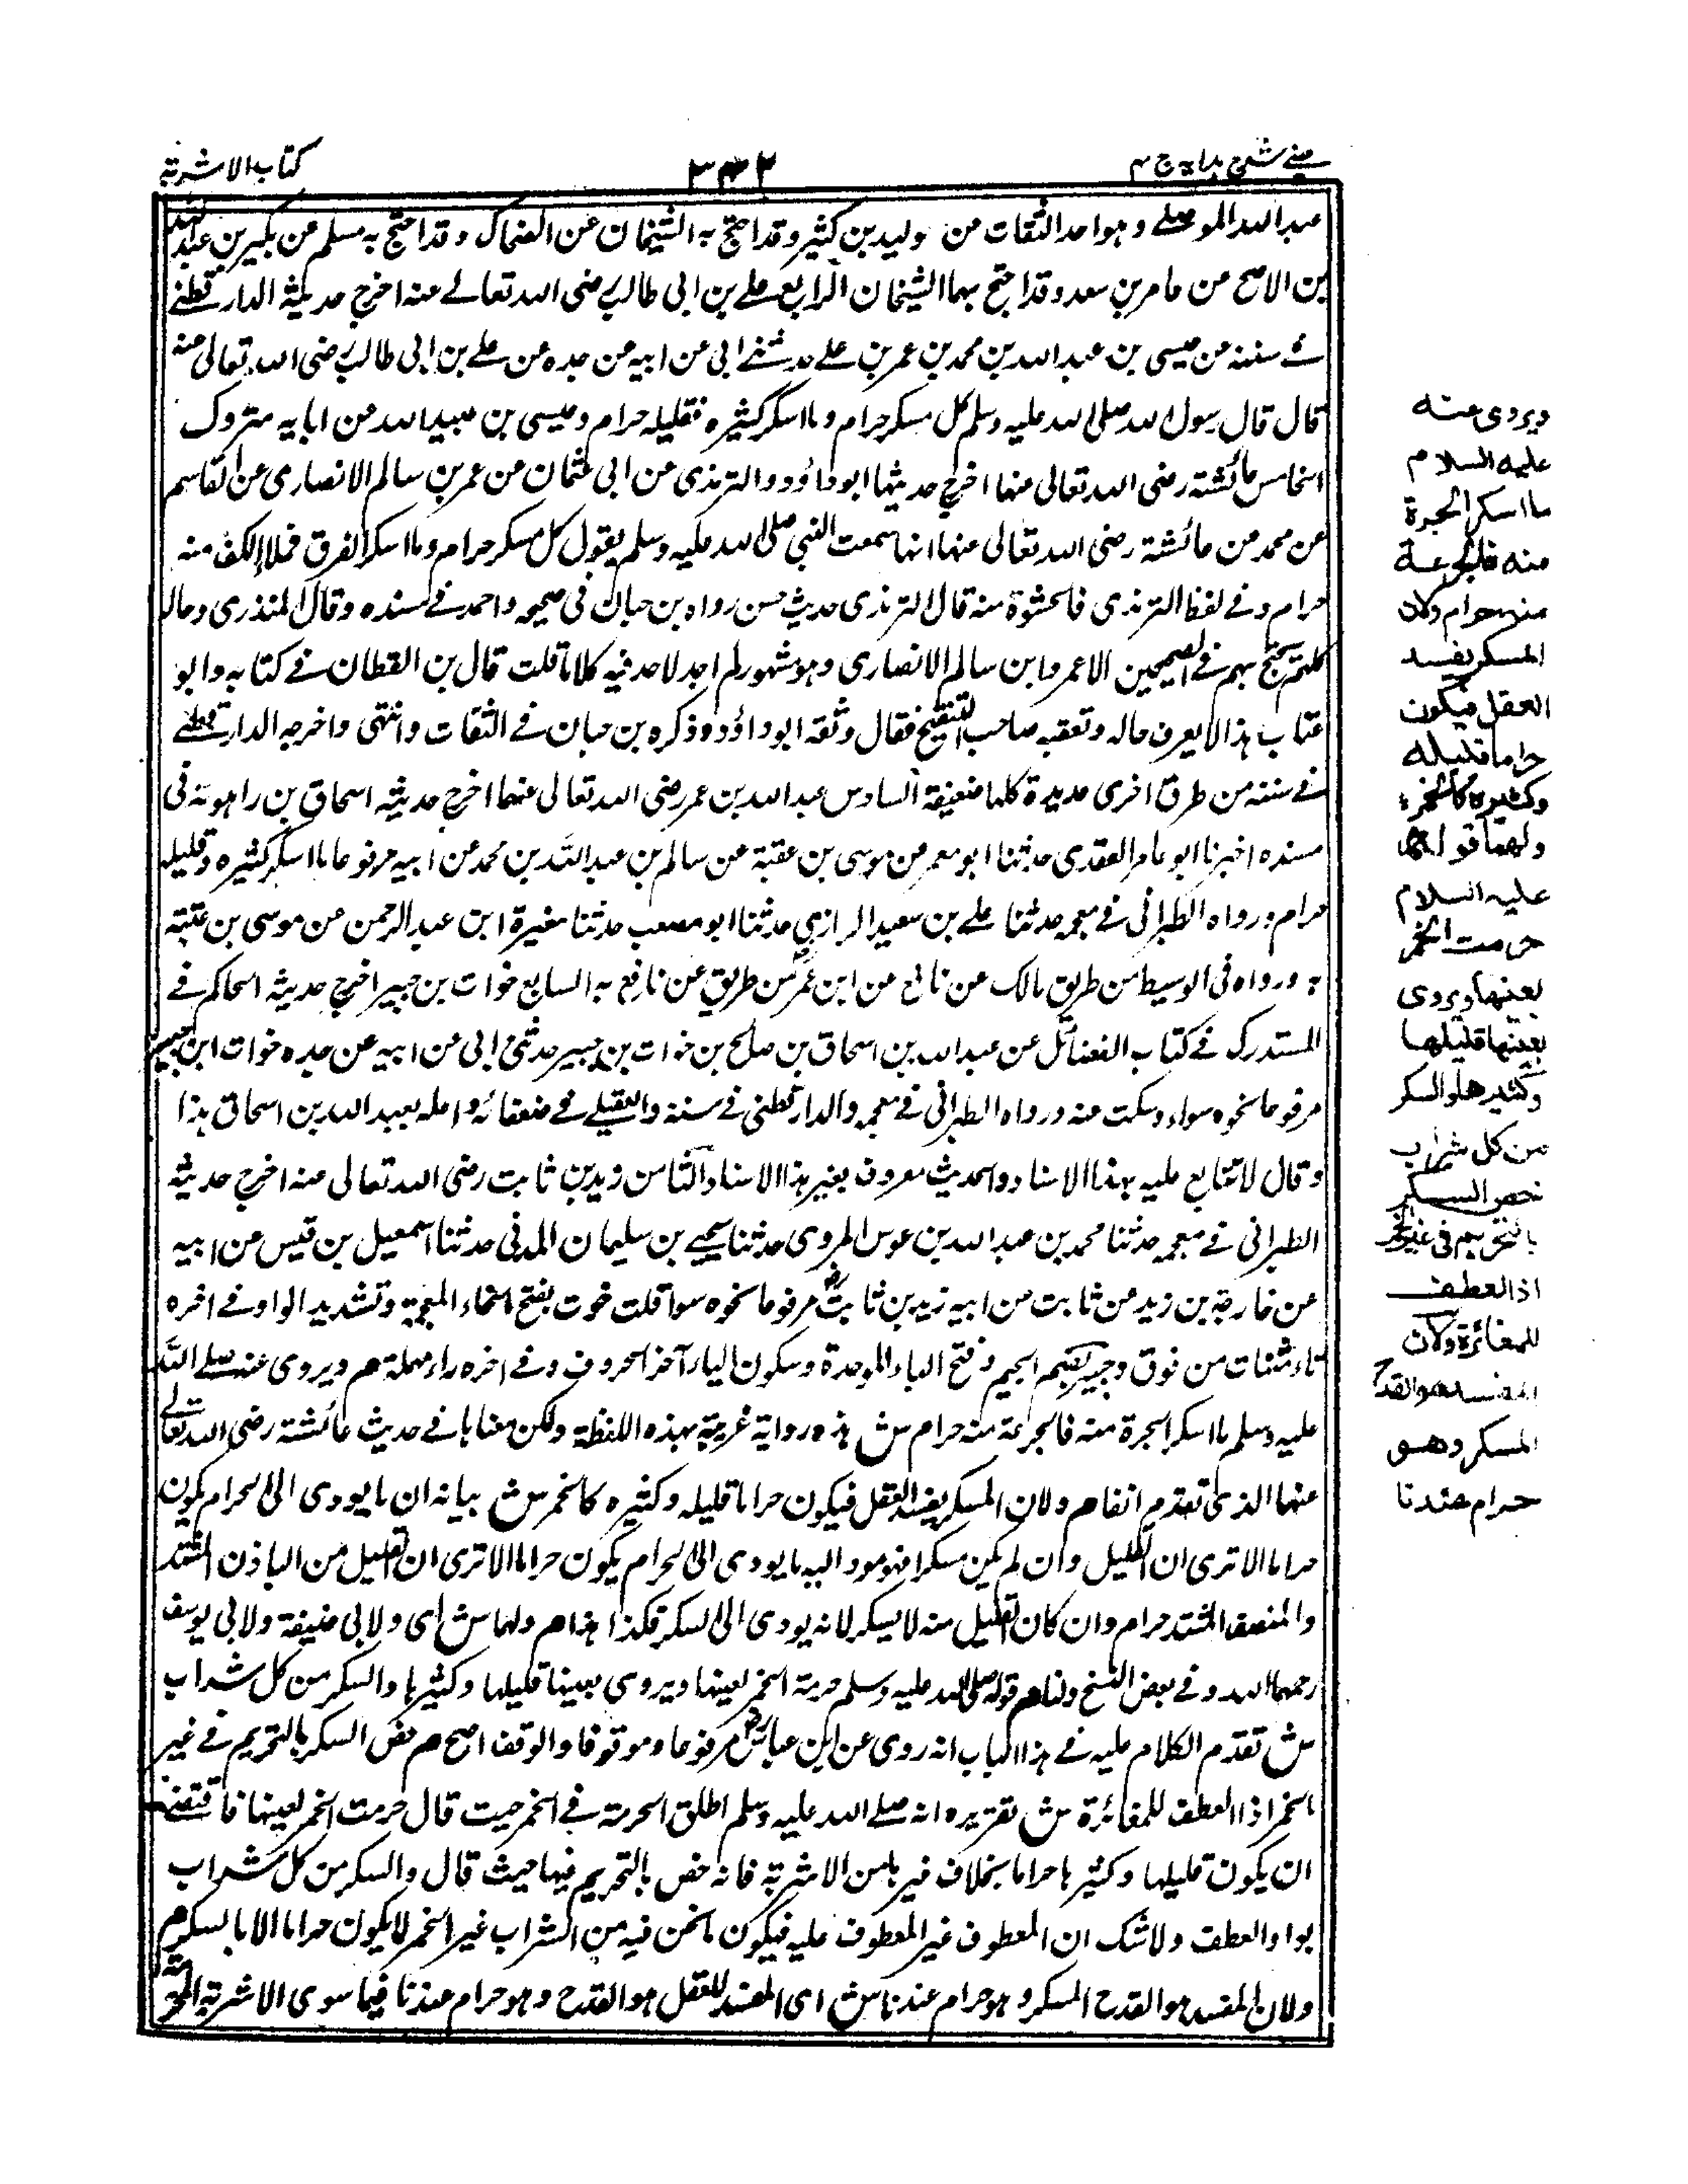 عینی شرح ہدایہ ج ۴
۳۴۲
کتاب الاشربة
عبد الله الموصلے وہو احد الثقات من ولید بن کثیر وقد احتج به الشیخان عن الضحاک وقد احتج به مسلم عن بکیر بن عبد الله
بن الاشج عن عامر بن سعد وقد احتج بهما الشیخان الرابع علے بن ابی طالب رضی الله تعالے عنه اخرج حدیثه الدارقطنے
فے سننه عن عیسی بن عبد الله بن محمد بن عمر بن علے حدثنے ابی عن ابیه عن جده عن علے بن ابی طالب رضی الله تعالی عنه
قال قال رسول الله صلی الله علیه وسلم کل مسکر حرام وما اسکر کثیره فقلیله حرام وعیسی بن عبید الله عن ابایه متروک
الخامس عائشة رضی الله تعالی عنها اخرج حدیثها ابو داؤد والترمذی عن ابی عثمان عن عمر بن سالم الانصاری عن القاسم
عن محمد عن عائشة رضی الله تعالی عنها انها سمعت النبی صلی الله علیه وسلم یقول کل مسکر حرام وما اسکر الفرق فملاء الکف منه
حرام وفے لفظ الترمذی فالحشوة منه قال الترمذی حدیث حسن رواه بن حبان فی صحیحه واحمد فے مسنده وقال المنذری رجاله
کلهم یحتج بهم فے الصحیحین الا عمر وابن سالم الانصاری وهو مشهور لم اجد لاحد فیه کلاما قلت قال بن القطان فے کتابه وابو
عثمان هذا لا یعرف حاله وتعقبه صاحب التنقیح فقال وثقه ابو داؤد وذکره بن حبان فے الثقات وانتهی واخرجه الدارقطنے
فے سننه من طرق اخری عدیدة کلها ضعیفة السادس عبد الله بن عمر رضی الله تعالی عنهما اخرج حدیثه اسحاق بن راهویه فی
مسنده اخبرنا ابو عامر العقدی حدثنا ابو معمر عن موسی بن عقبة عن سالم بن عبد الله بن محمد عن ابیه مرفوعا ما اسکر کثیره وقلیله
حرام ورواه الطبرانی فے معجمه حدثنا علے بن سعید الرازی حدثنا ابو مصعب حدثنا مغیرة ابن عبد الرحمن عن موسی بن عقبة
به ورواه فی الوسیط من طریق مالک عن نافع عن ابن عمر من طریق عن نافع به السابع خوات بن جبیر اخرج حدیثه الحاکم فے
المستدرک فے کتاب الفضائل عن عبد الله بن اسحاق بن صالح بن خوات بن جبیر حدثنی ابی عن ابیه عن جده خوات ابن جبیر
مرفوعا نحوه سواء وسکت عنه ورواه الطبرانی فے معجمه والدارقطنی فے سننه والعقیلے فے ضعفائه واعله بعبد الله بن اسحاق هذا
وقال لا تتابع علیه بهذا الاسناد والحدیث معروف بغیر هذا الاسناد الثامن زید بن ثابت رضی الله تعالی عنه اخرج حدیثه
الطبرانی فے معجمه حدثنا محمد بن عبد الله بن عوس المروی حدثنا یحیی بن سلیمان المدنی حدثنا اسمعیل بن قیس عن ابیه
عن خارجة بن زید عن ثابت عن ابیه زید بن ثابت رض مرفوعا نحوه سوا قلت خوت بفتح الخاء المعجمة وتشدید الواو فے اخره
تاء مثنات من فوق وجبیر بضم الجیم وفتح الباء الموحدة وسکون الیاء آخر الحروف وفے اخره راء مهملة هم ویروی عنه صلے الله
علیه وسلم ما اسکر الجرة منه فالجرعة منه حرام ش هذه روایة غریبة بهذه اللفظة ولکن معناها فے حدیث عائشة رضی الله تعالی
عنها الذی تقدم انفا هم ولان المسکر یفسد العقل فیکون حراما قلیله وکثیره کالخمر ش بیانه ان ما یودی الی الحرام یکون
حراما الا تری ان القلیل وان لم یکن مسکرا فهو مود الیه ما یودی الی الحرام یکون حراما الا تری ان القلیل من الباذن المشتد
والمنصف المشتد حرام وان کان القلیل منه لا یسکر لانه یودی الی السکر فکذا هذا هم ولهما ش ای ولابی حنیفة ولابی یوسف
رحمهما الله وفے بعض النسخ ولنا هم قوله صلی الله علیه وسلم حرمة الخمر لعینها ویروی بعینها قلیلها وکثیرها والسکر من کل شراب
ش تقدم الکلام علیه فے هذا الباب انه روی عن ابن عباس رض مرفوعا وموقوفا والوقف اصح هم خص السکر بالتحریم فے غیر
الخمر اذا العطف للمغائرة ش تقریره انه صلے الله علیه وسلم اطلق الحرمة فے الخمر حیت قال حرمت الخمر لعینها فاقتضے
ان یکون قلیلها وکثیرها حراما بخلاف غیرها من الاشربة فانه خص بالتحریم فیها حیث قال والسکر من کل شراب
بواو العطف ولا شک ان المعطوف غیر المعطوف علیه فیکون ما نحن فیه من الشراب غیر الخمر لا یکون حراما الا بالسکر هم
ولان المفسد هو القدح المسکر وهو حرام عندنا ش ای المفسد للعقل هو القدح وهو حرام عندنا فیما سوی الاشربة المحرمة
ویروی عنه
علیه السلام
ما اسکر الجرة
منه فالجرعة
منه حرام ولان
المسکر یفسد
العقل فیکون
حراما قلیله
وکثیره کالخمر
ولهما قوله
علیه السلام
حرمت الخمر
بعینها ویروی
بعینها قلیلها
وکثیرها والسکر
من کل شراب
خص السکر
بالتحریم فی غیر الخمر
اذ العطف
للمغائرة ولان
المفسد هو القدح
المسکر وهو
حرام عندنا